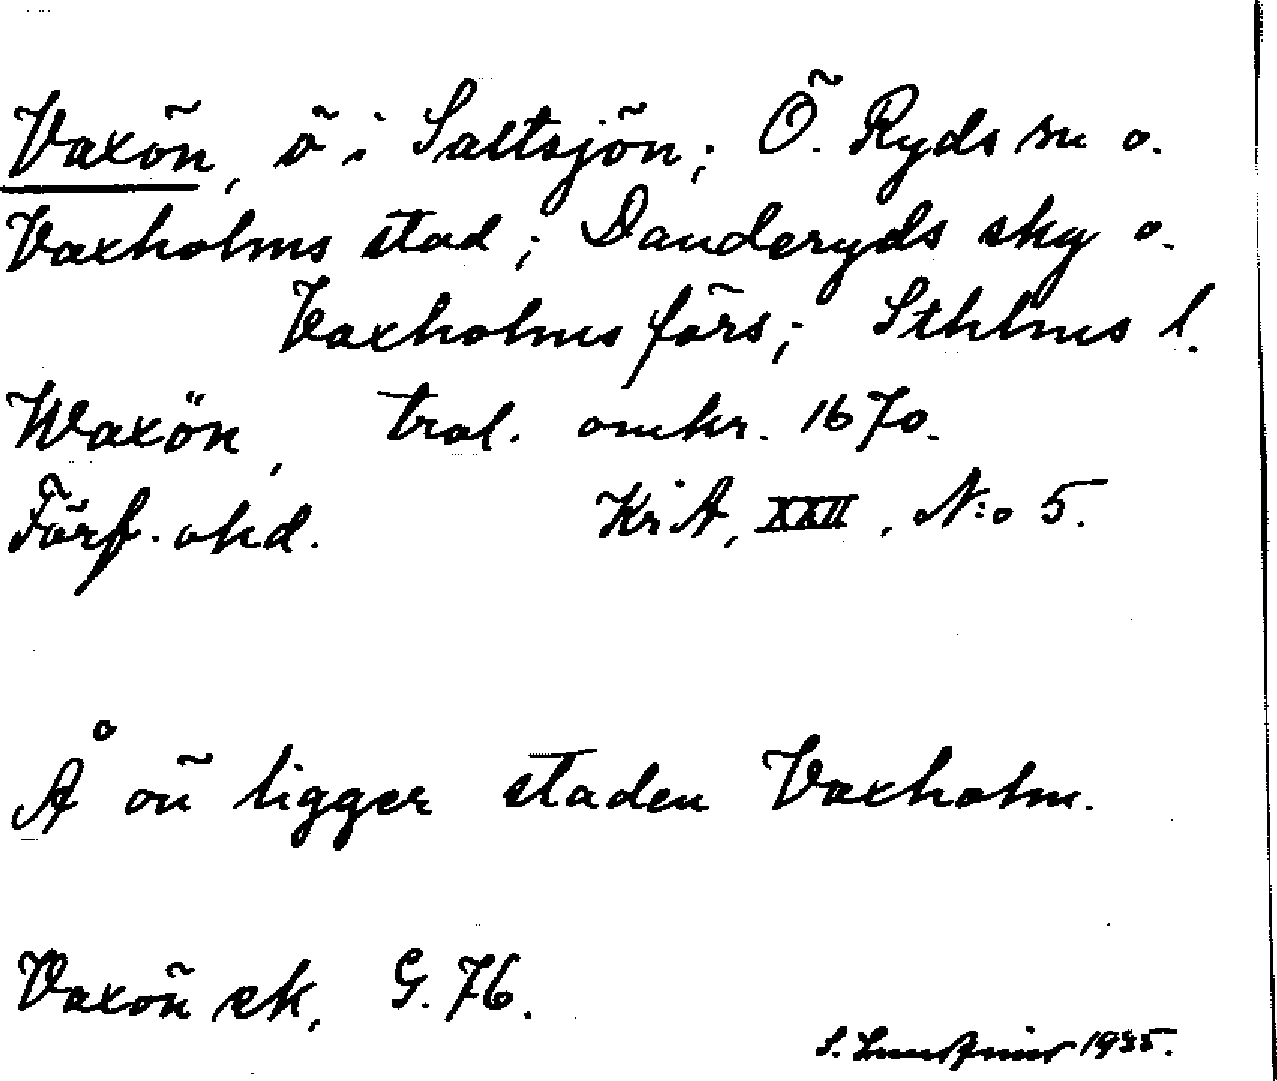 Vaxön, ö i Saltsjön; Ö. Ryds sn o.
Vaxholms stad; Danderyds skg o.
Vaxholms förs; Sthlms l.
Waxön, trol. omkr. 1670.
Förf. okd. KrA, XXII, N:o 5.
Å ön ligger staden Vaxholm.
Vaxön ek, G. 76.
S. 1935.